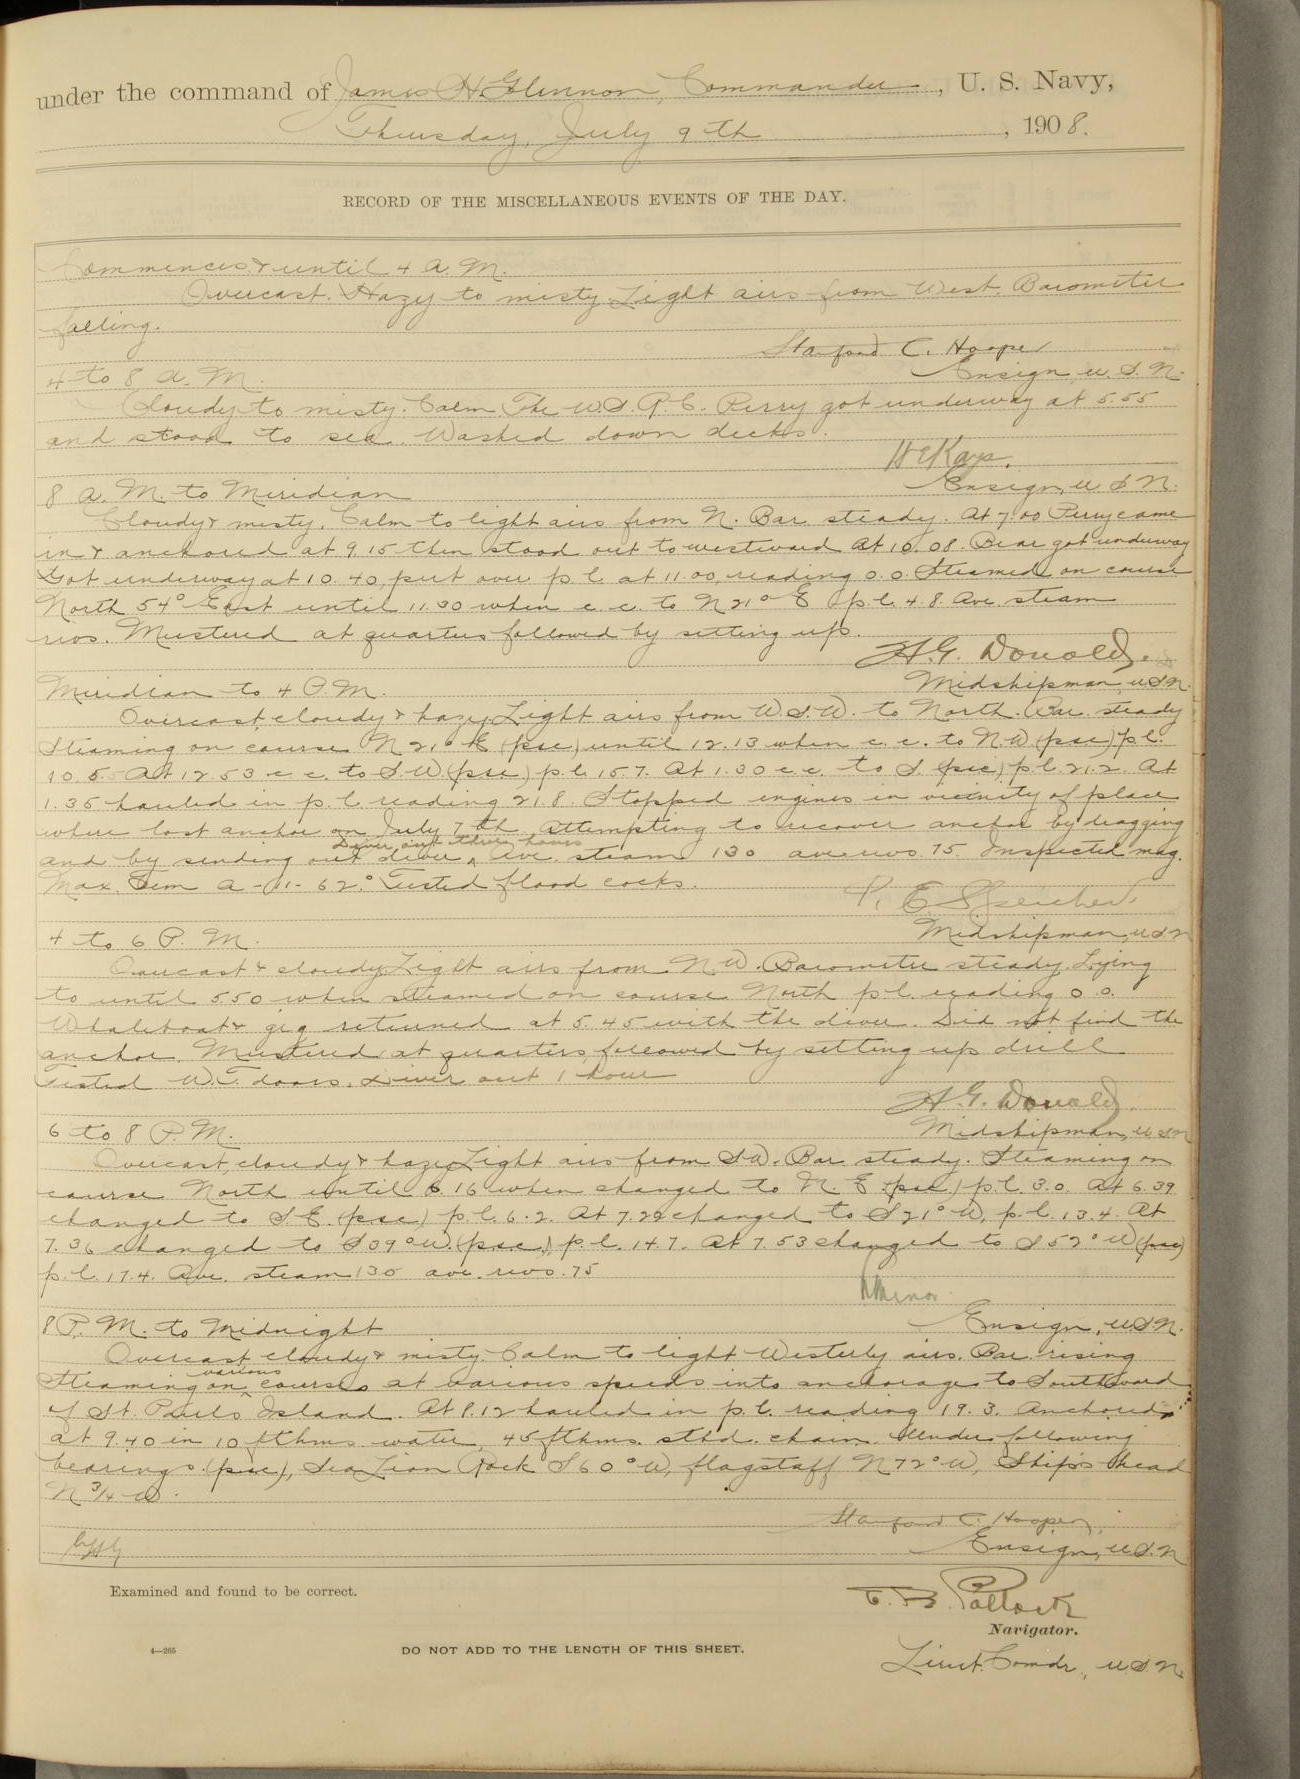 under the command of James H. Glennon, Commander, U. S. Navy,
Thursday, July 9th, 1908.
RECORD OF THE MISCELLANEOUS EVENTS OF THE DAY.
Commences & until 4 A. M.
Overcast. Hazy to misty. Light airs from West. Barometer
falling.
Stanford C. Hooper
Ensign, U. S. N.
4 to 8 A. M.
Cloudy to misty. Calm. The U. S. R. C. Perry got underway at 5.55
and stood to sea. Washed down decks.
Ensign, U S N.
8 A. M. to Meridian
Cloudy & misty. Calm to light airs from N. Bar steady. At 7.00 Perry came
in & anchored at 9.15 then stood out to westward At 10.08. Bear got underway
Got underway at 10.40, put over p l. at 11.00, reading 0.0. Steamed on course
North 54° East until 11.30 when c. c. to N 21° E p. l. 4.8. Ave. steam
revs. Mustered at quarters followed by setting up.
H. G. Donald.
Midshipman, U S N.
Meridian to 4 P. M.
Overcast, cloudy & hazy. Light airs from W. S. W. to North. Bar. steady
Steaming on course N 21° E (psc) until 12.13 when c. c. to N. W (psc) p. l.
10.5. At 12.53 c c. to S. W. (psc) p. l. 15.7. At 1.30 c. c. to S. (psc) p l. 21.2. At
1.35 hauled in p. l. reading 21.8. Stopped engines in vicinity of place
where lost anchor on July 7th, attempting to recover anchor by dragging
Diver out three hours
and by sending out diver ^ Ave. steam 130 ave revs 75. Inspected mag.
Max. Tem A-11-62.° Tested flood cocks.
Midshipman, U S N
4 to 6 P. M.
Overcast & cloudy. Light airs from N. W. Barometer steady. Lying
to until 5.50 when steamed on course North p l. reading 0.0.
Whaleboat & gig returned at 5.45 with the diver. Did not find the
anchor. Mustered at quarters, followed by setting up drill
Tested W. T. doors. Diver out 1 hour
H. G. Donald.
Midshipman, U S N
6 to 8 P. M.
Overcast, cloudy & hazy. Light airs from S. W. Bar steady. Steaming on
course North until 6.16 when changed to N. E (psc) p. l. 3.0. At 6.39
changed to S. E. (psc) p. l. 6.2. At 7.29 changed to S 21° W, p. l. 13.4. At
7.36 changed to S 39° W. (psc) p. l. 14.7. At 7.53 changed to S 52° W (psc)
p. l. 17.4. Ave. steam 130 ave. revs. 75
Ensign, U. S. N.
8 P. M. to Midnight
Overcast, cloudy & misty. Calm to light Westerly airs. Bar. rising
various
Steaming on ^ courses at various speeds into anchorage to Southward
of St. Pauls Island. At 8.12 hauled in p. l. reading 19.3. Anchored
at 9.40 in 10 fthms. water, 45 fthms. stbd. chain. Under following
bearings (psc), Sea Lion Rock S 60° W, flagstaff N 72° W, Ship's head
N 3/4 W.
Stanford C. Hooper,
Ensign, U. S. N
Examined and found to be correct.
Navigator.
4—265
DO NOT ADD TO THE LENGTH OF THIS SHEET.
Lieut. Comdr., U. S. N.